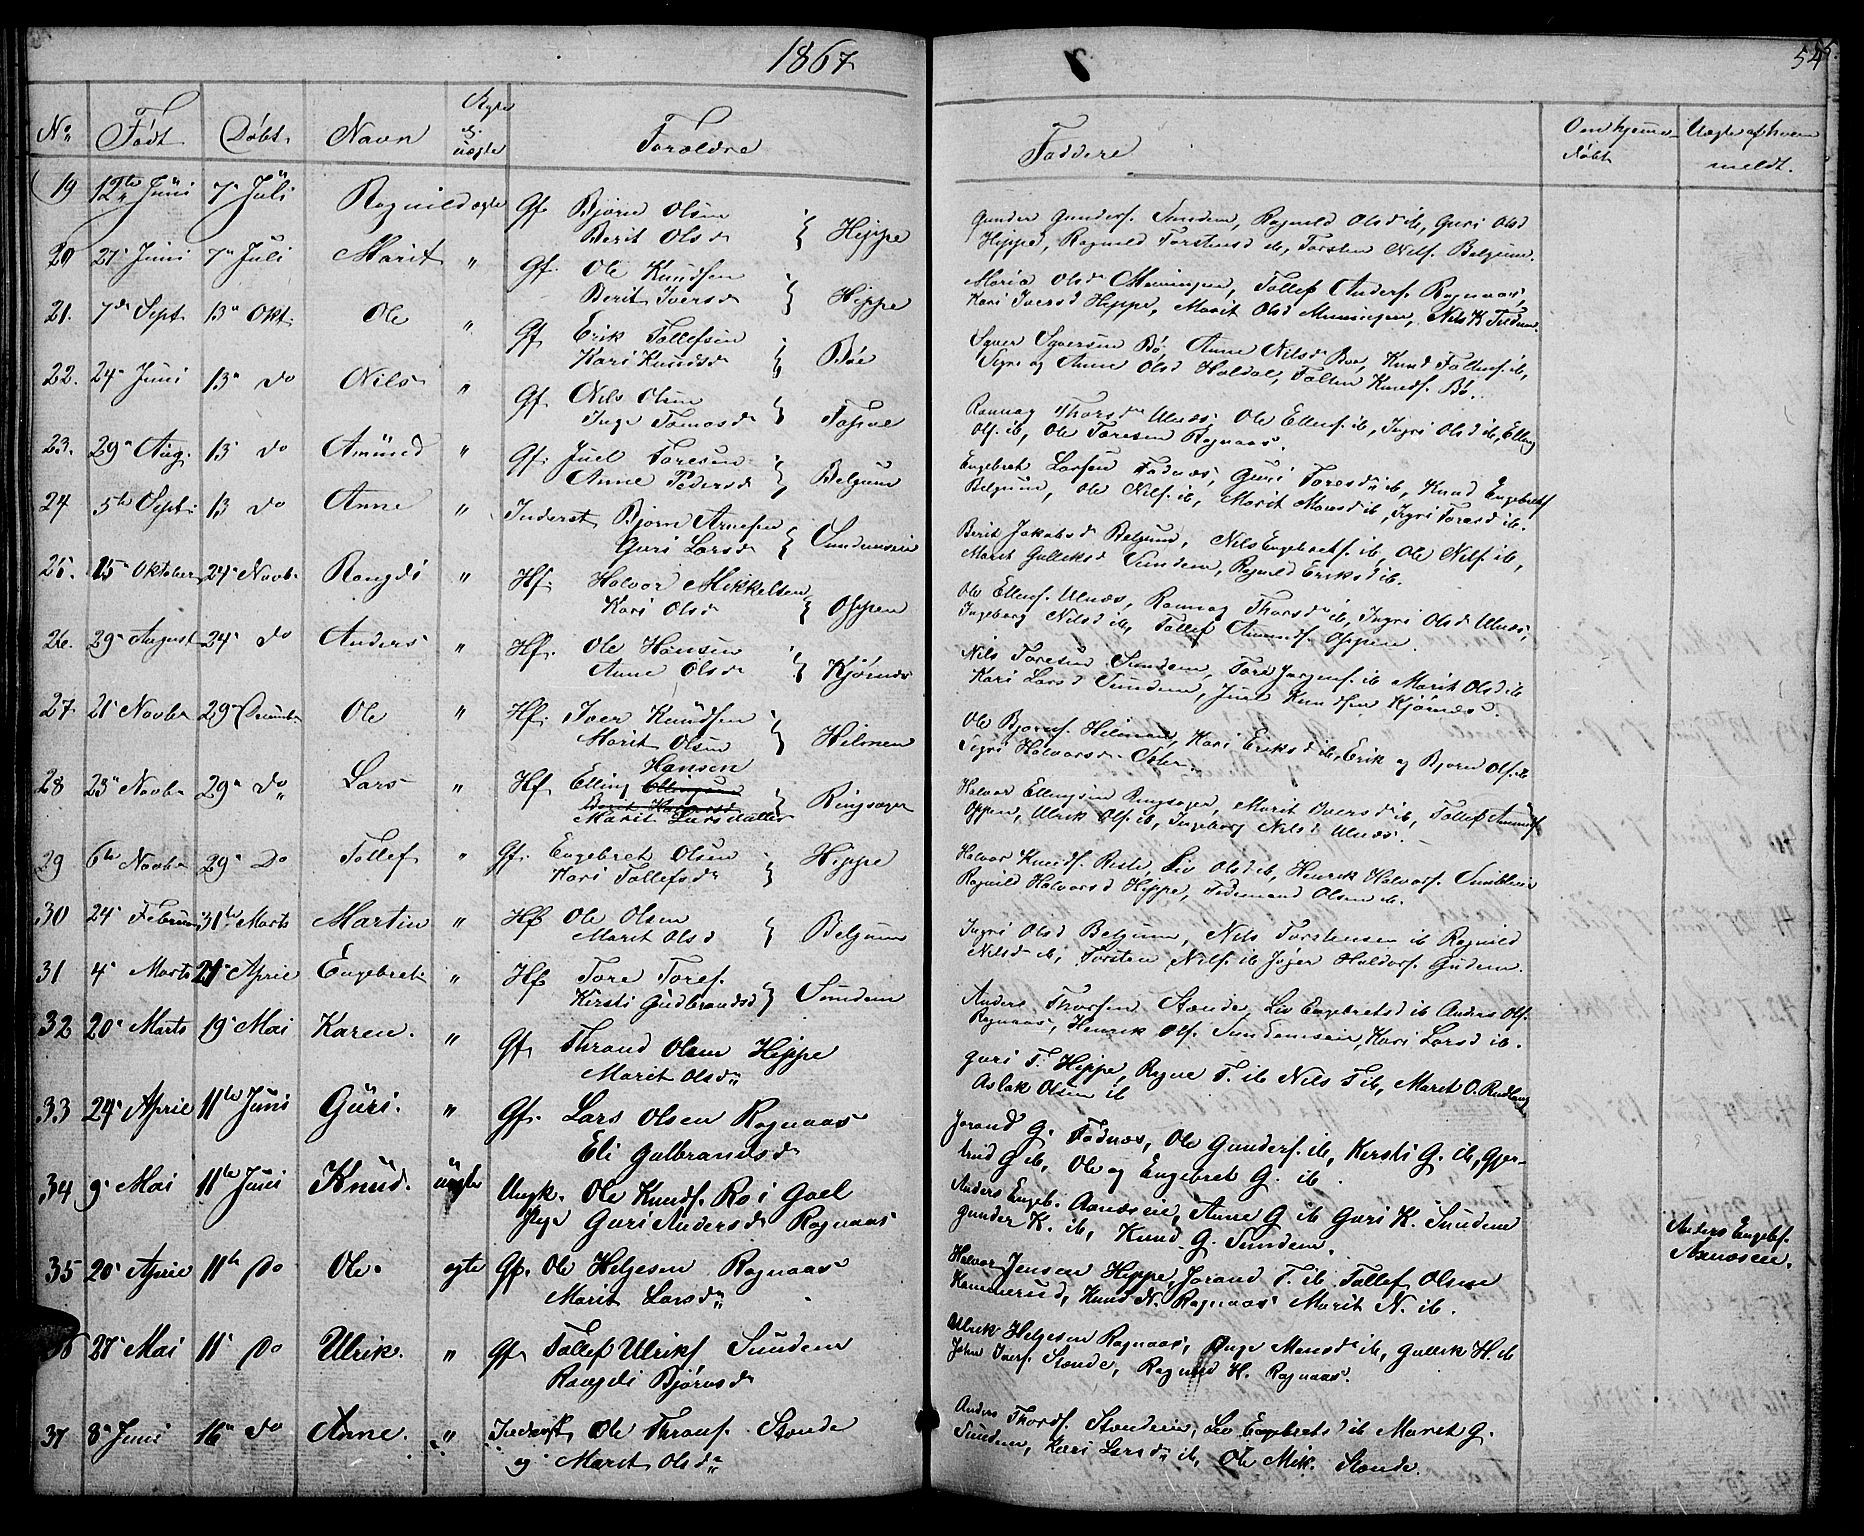 1867
54
No Født Døbt Navn Ægte el. uægte Forældre Faddere Om hjemmedøbt Uægte af hvem meldt.
19 12te Juni 7de Juli Rognild ægte Gf. Bjørn Olsen Berit Olsd Hippe
Gunder Gunders. Sundem, Rognild Olsd ib, Guri Olsd
Hippe, Rognild Torstensd ib, Torsten Nils. Belgum.
20 27 Juni 7 Juli Marit " Gf. Ole Knudsen Berit Iversd Hippe
Maria Olsd Meningen, Tollef Anders. Rognaas,
Kari Iversd Hippe, Marit Olsd Meningen, Nils K.
21. 7de Sept 13 Okt. Ole " Gf. Erik Tollefsen Kari Knudsd Bøe
Syver Syversen Bø, Anne Nilsd Bøe, Knud Tollefs. ib,
Sigri og Anne Olsd Haldal, Knuds. Bø.
22. 24 Juni 13 Do Nils " Gf. Nils Olsen Inge Tomasd
Rannog Thorsd Ulnæs, Ole Ellens. ib, Ingri Olsd ib, Elling
Ols. ib, Ole Toresen Rognaas.
23. 29 Aug. 13 Do Amund " Gf. Juel Toresen Anne Pedersd Belgum
Engebret Larsen Fodnæs, Guri Toresd ib, Knud Engebrets
Belgum, Ole Nils. ib, Marit Monsd ib, Ingri Toresd ib.
24 5te Sept. 13 Do Anne " Inderst Bjørn Arnesen Guri Larsd Sundemseie
Berit Jakobsd Belgum, Nils Engebrets. ib, Ole Nils. ib,
Marit Gulleksd Sundem, Rognild Eriksd ib.
25. 15 Oktober 24 Novb. Rangdi " Hf. Halvor Mikkelsen Kari Olsd Oppen
Ole Ellens. Ulnæs, Rannog Thorsd ib, Ingri Olsd Ulnæs,
Ingeborg Nilsd ib, Tollef Amunds. Oppen.
26. 29 August 24 Do Anders " Hf. Ole Hansen Anne Olsd Kjørnæs
Nils Toresen Sundem, Tore Jørgens. ib Marit Olsd ib
Kari Larsd Sundem, Juel Knudsen Kjørnæs.
27 21 Novbr 29 Decembr Ole " Hf. Iver Knudsen Marit Olsen Hilmen
Ole Bjørns. Hilmen, Kari Eriksd ib, Erik og Bjørn Ols. ib
Sigri Halvorsd
28 23 Novbr 29 Do Lars " Hf. Elling Hansen Ellingsen Berit Halvorsd Marit Larsdatter Ringsager
Halvor Ellingsen Ringsager, Marit Iversd ib, Tollef Amunds.
Oppen, Ulrik Ols. ib, Ingeborg Nilsd Ulnæs.
29 6te Novbr 29 Do Tollef " Gf. Engebret Olsen Kari Tollefsd Hippe
Halvor Knuds. Riste, Liv Olsd ib, Henrik Halvors.
Rognild Halvorsd Hippe, Olsen ib.
30 24 Februar 31te Marts Martin " Hf. Ole Olsen Marit Olsd Belgum
Ingri Olsd Belgum, Nils Torstensen ib Rognild
Nilsd ib, Torsten Nils. ib Haldors.
31 4 Marts 21 April Engebret " Hf. Tore Tores. Kersti Gudbrandsd Sundem
Anders Thorsen Stende, Liv Engebretsd ib Anders Ols.
Rognaas, Henrik Ols. Sundemseie, Kari Larsd ib.
32 20 Marts 19 Mai Karen. " Gf. Thrond Olsen Hippe Marit Olsd
Guri T. Hippe, T. ib Nils T ib, Marit O. Rudland
Aslak Olsen ib
33 24 April 11te Juni Guri. " Gf. Lars Olsen Rognaas Eli Gulbrandsd
Jorand G. Fodnæs, Ole Gunders. ib, Kersti G. ib, Gjer-
trud G ib, Ole og Engebret G. ib.
34 9 Mai 11te Juni Knud. uægte Ungk. Ole Knuds. Ro i Goel Pige Guri Andersd Rognaas
Anders Engeb. Aanæseie, Anne G ib Guri K. Sundem
Gunder K. ib, Knud G. Sundem.
Anders Engebs.
35 20 April 11te Do Ole. ægte Gf. Ole Helgesen Rognaas Marit Larsd
Halvor Jensen Hippe, Jorand T. ib Tollef Olsen
Kammerud, Knud N. Rognaas Marit N. ib.
36 27 Mai 11 Do Ulrik. " Gf. Tollef Ulriks Sundem Rangdi Bjørnsd
Ulrik Helgesen Rognaas, Inge Monsd ib, Gullik H. ib
John Ivers. Stende, Rognild H. Rognaas.
37 8 Juni 16 Do Anne. " Inderst Ole Throns. Stende og Marit Olsd
Anders Thords. Stendeeie, Liv Engebretsd ib Marit G.
Sundem, Kari Larsd ib, Ole Mik. Stende.